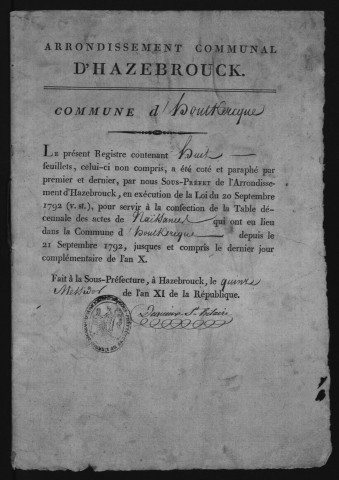 ARRONDISSEMENT COMMUNAL
D'HAZEBROUCK.
COMMUNE d'Houtkercque
LE présent Registre contenant huit
feuillets, celui-ci non compris, a été coté et paraphé par
premier et dernier, par nous SOUS-PRÉFET de l'Arrondisse-
ment d'Hazebrouck, en exécution de la Loi du 20 Septembre
1792 (v. st.), pour servir à la confection de la Table dé-
cennale des actes de Naissances qui ont eu lieu
dans la Commune d'houtkerque depuis le
21 Septembre 1792, jusques et compris le dernier jour
complémentaire de l'an X.
Fait à la Sous-Préfecture, à Hazebrouck, le quinze
Messidor de l'an XI de la République.